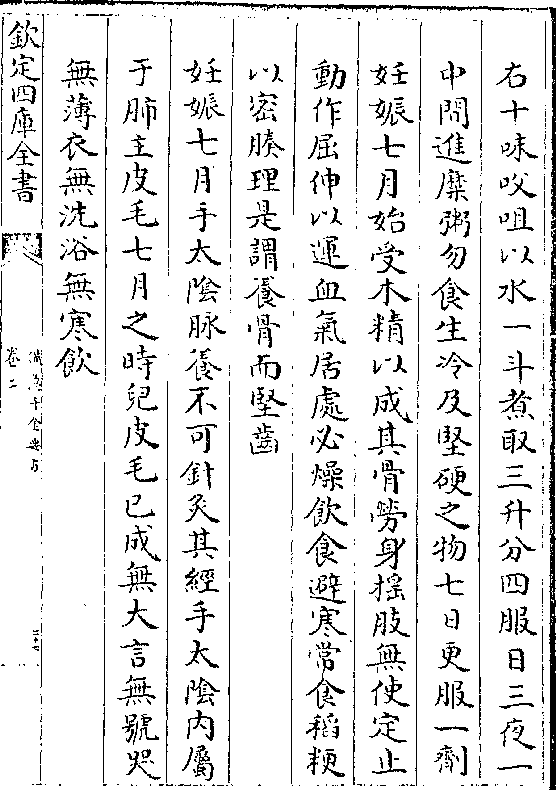 右十味㕮咀以水一斗煮取三升分四服日三夜一
中間進糜粥勿食生冷及堅硬之物七日更服一劑
妊娠七月始受木精以成其骨勞身揺肢無使定止
動作屈伸以運血氣居處必燥飲食避寒常食稻粳
以密腠理是謂養骨而堅齒
妊娠七月手太陰脉養不可針灸其經手太陰内屬
于肺主皮毛七月之時兒皮毛已成無大言無號哭
無薄衣無洗浴無寒飲
欽定四庫全書
卷二